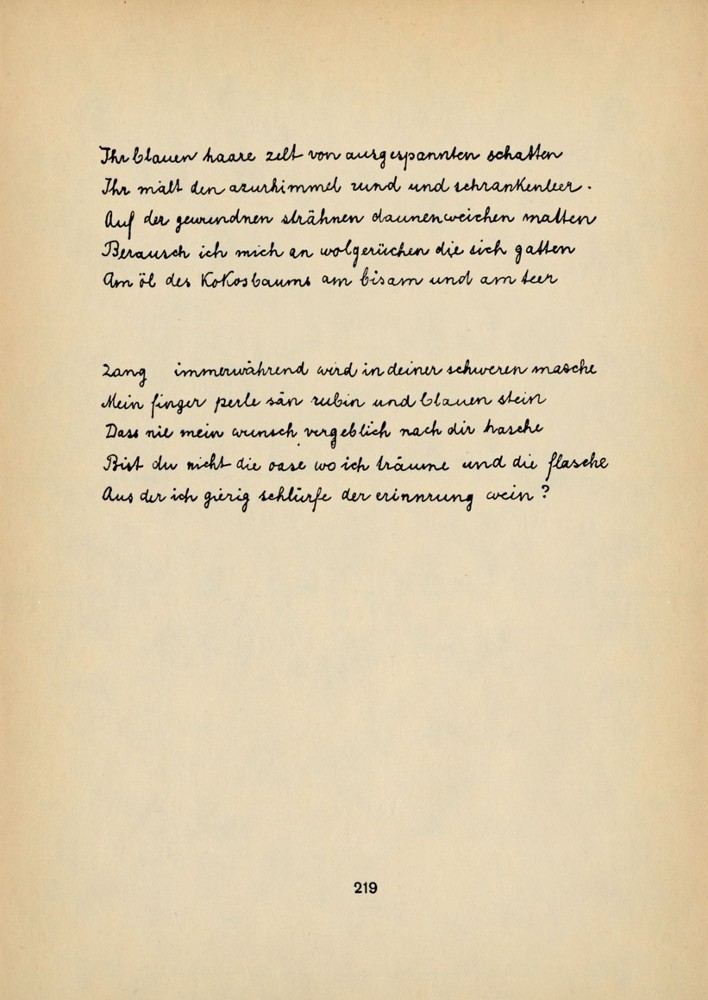 Ihr blauen haare zelt von ausgespannten schatten
Ihr malt den azurhimmel rund und schrankenleer.
Auf der gewundnen strähnen daunenweichen matten
Berausch ich mich an wolgerüchen die sich gatten
Am öl des Kokosbaums am bisam und am teer
Lang immerwährend wird in deiner schweren masche
Mein finger perle sän rubin und blauen stein
Dass nie mein wunsch vergeblich nach dir hasche
Bist du nicht die oase wo ich träume und die flasche
Aus der ich gierig schlürfe der erinnrung wein?
219